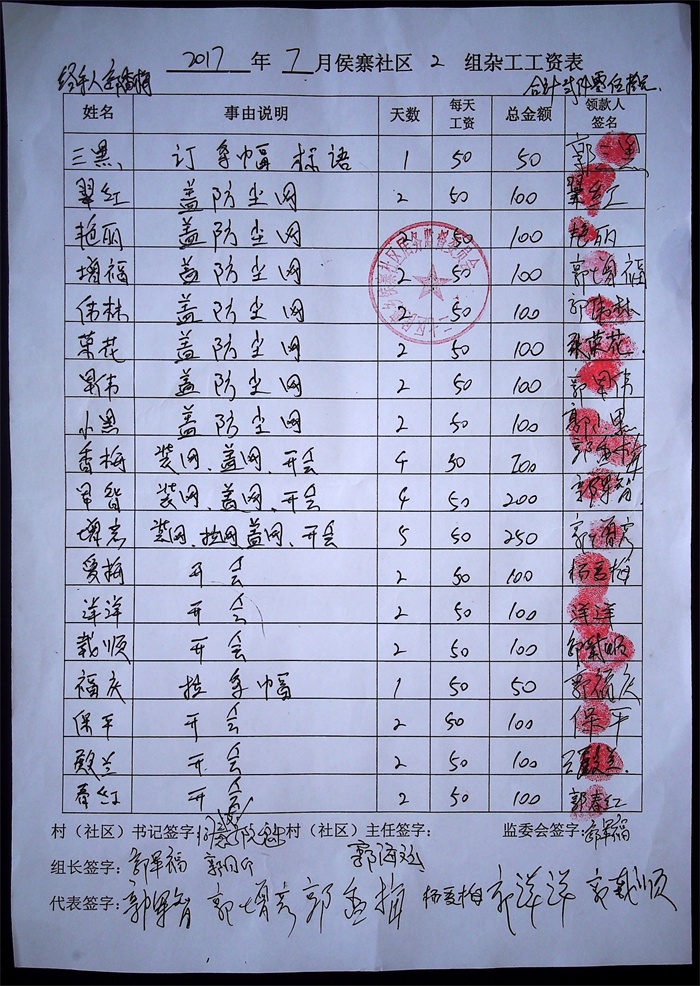 2017 年 7 月侯寨社区 2 组杂工工资表
经手人 郭香梅 合计贰仟零伍拾元
姓名 事由说明 天数 每天工资 总金额 领款人签名
三黑 订条幅标语 1 50 50 郭三黑
翠红 盖防尘网 2 50 100 翠红
艳丽 盖防尘网 2 50 100 艳丽
增福 盖防尘网 2 50 100 郭增福
伟林 盖防尘网 2 50 100 郭伟林
荣花 盖防尘网 2 50 100 荣花
军伟 盖防尘网 2 50 100 郭军伟
小黑 盖防尘网 2 50 100 郭小黑
香梅 装网、盖网、开会 4 50 200 郭香梅
军智 装网、盖网、开会 4 50 200 郭军智
增彦 装网、拉网盖网、开会 5 50 250 郭增彦
爱梅 开会 2 50 100 杨爱梅
洋洋 开会 2 50 100 洋洋
栽顺 开会 2 50 100 郭栽顺
福庆 拉条幅 1 50 50 郭福庆
保平 开会 2 50 100 保平
殿兰 开会 2 50 100 王殿兰
春红 开会 2 50 100 郭春红
村（社区）书记签字: 村（社区）主任签字: 监委会签字: 郭军福
组长签字: 郭军福
郭海
代表签字: 郭军智 郭增彦 郭香梅 杨爱梅 郭洋洋 郭栽顺